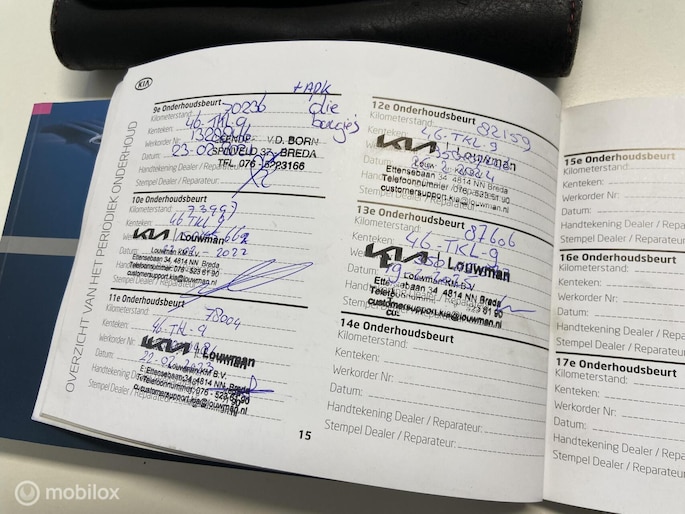 OVERZICHT VAN HET PERIODIEK ONDERHOUD
KIA
+ APK
9e Onderhoudsbeurt
Kilometerstand: 70236
olie
bougies
Kenteken: 46-TKL-9
Werkorder Nr
Datum: 23-02
KENDE V.D. BORN
SPINVELD 37 BREDA
TEL. 076-5223166
Handtekening Dealer / Reparateur
Stempel Dealer / Reparateur:
10e Onderhoudsbeurt
Kilometerstand:
Kenteken: 46 TKL 9
KIA Louwman
Louwman KM B.V.
Datum: 2022
Ettensebaan 34, 4814 NN Breda
Telefoonnummer: 076 - 523 61 90
customersupport.kia@louwman.nl
Handtekening Dealer
Stempel Dealer / Rep
11e Onderhoudsbeurt
Kilometerstand: 78004
Kenteken: 46-TKL-9
Werkorder Nr
KIA Louwman
Louwman KM B.V.
Datum: 22-02
Ettensebaan 34, 4814 NN Breda
Telefoonnummer: 076 - 523 61 90
customersupport.kia@louwman.nl
Handtekening Dealer
Stempel Dealer / Reparateur
12e Onderhoudsbeurt
Kilometerstand: 82159
Kenteken: 46-TKL-9
Werkorder
KIA Louwman
Datum: 2024
Ettensebaan 34, 4814 NN Breda
Telefoonnummer: 076 - 523 61 90
customersupport.kia@louwman.nl
Handtekening Dealer
Stempel Dealer / Reparateur:
13e Onderhoudsbeurt
Kilometerstand: 87606
Kenteken: 46-TKL-9
Werkorder
KIA Louwman
Louwman KM B.V.
Datum: 19
Ettensebaan 34, 4814 NN Breda
Telefoonnummer
customersupport.kia@louwman.nl
Handtekening
Stempel Dealer
14e Onderhoudsbeurt
Kilometerstand:
Kenteken:
Werkorder Nr:
Datum:
Handtekening Dealer / Reparateur:
Stempel Dealer / Reparateur:
15
15e Onderhoudsbeurt
Kilometerstand:
Kenteken:
Werkorder Nr:
Datum:
Handtekening Dealer / Repa
Stempel Dealer / Reparateu
16e Onderhoudsbeurt
Kilometerstand:
Kenteken:
Werkorder Nr:
Datum:
Handtekening Dealer / Rep
Stempel Dealer / Reparateu
17e Onderhoudsbeurt
Kilometerstand:
Kenteken:
Werkorder Nr:
Datum:
Handtekening Dealer / Re
Stempel Dealer / Reparat
mobilox